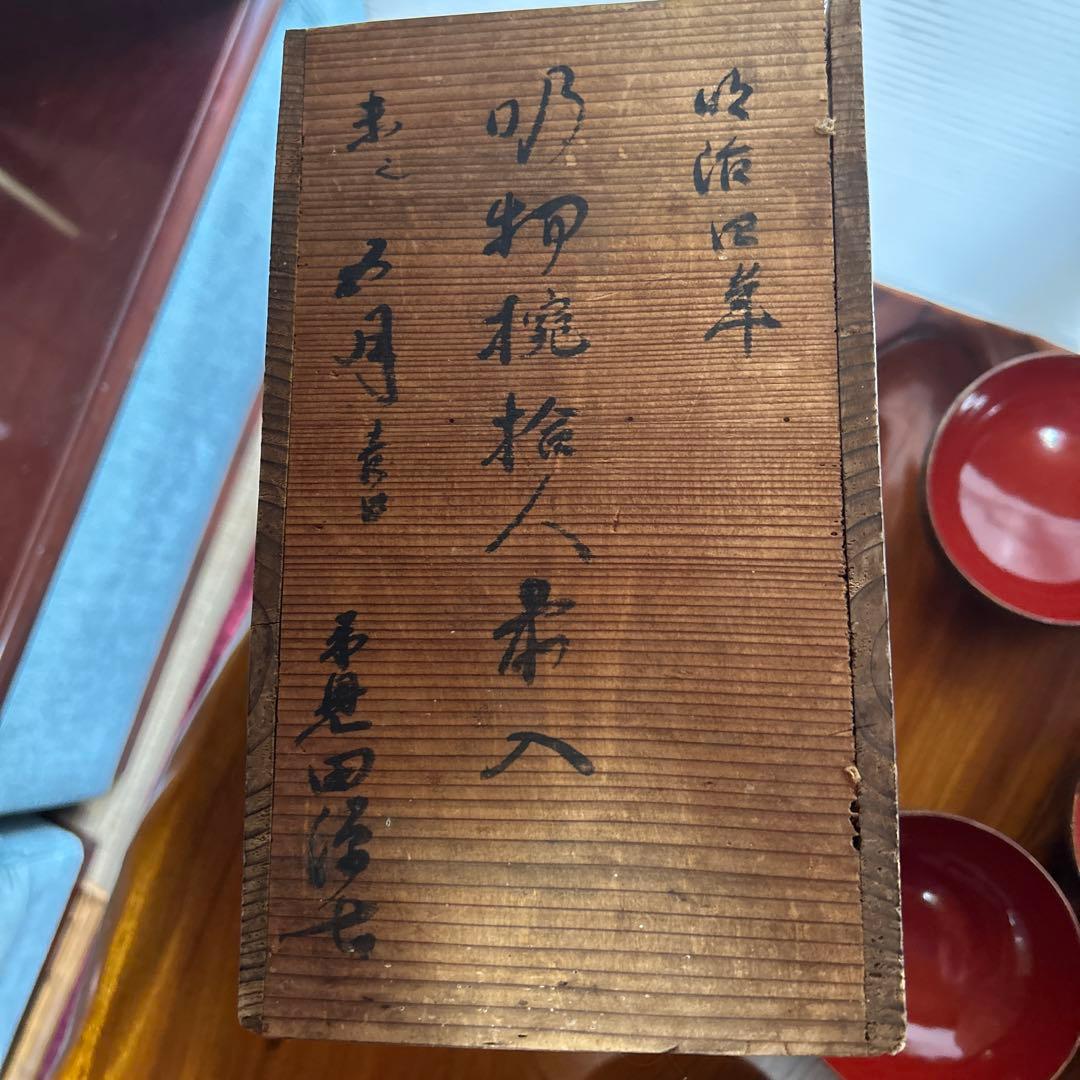 明治四年
吸物椀拾人前入
未之 五月吉日
田源七